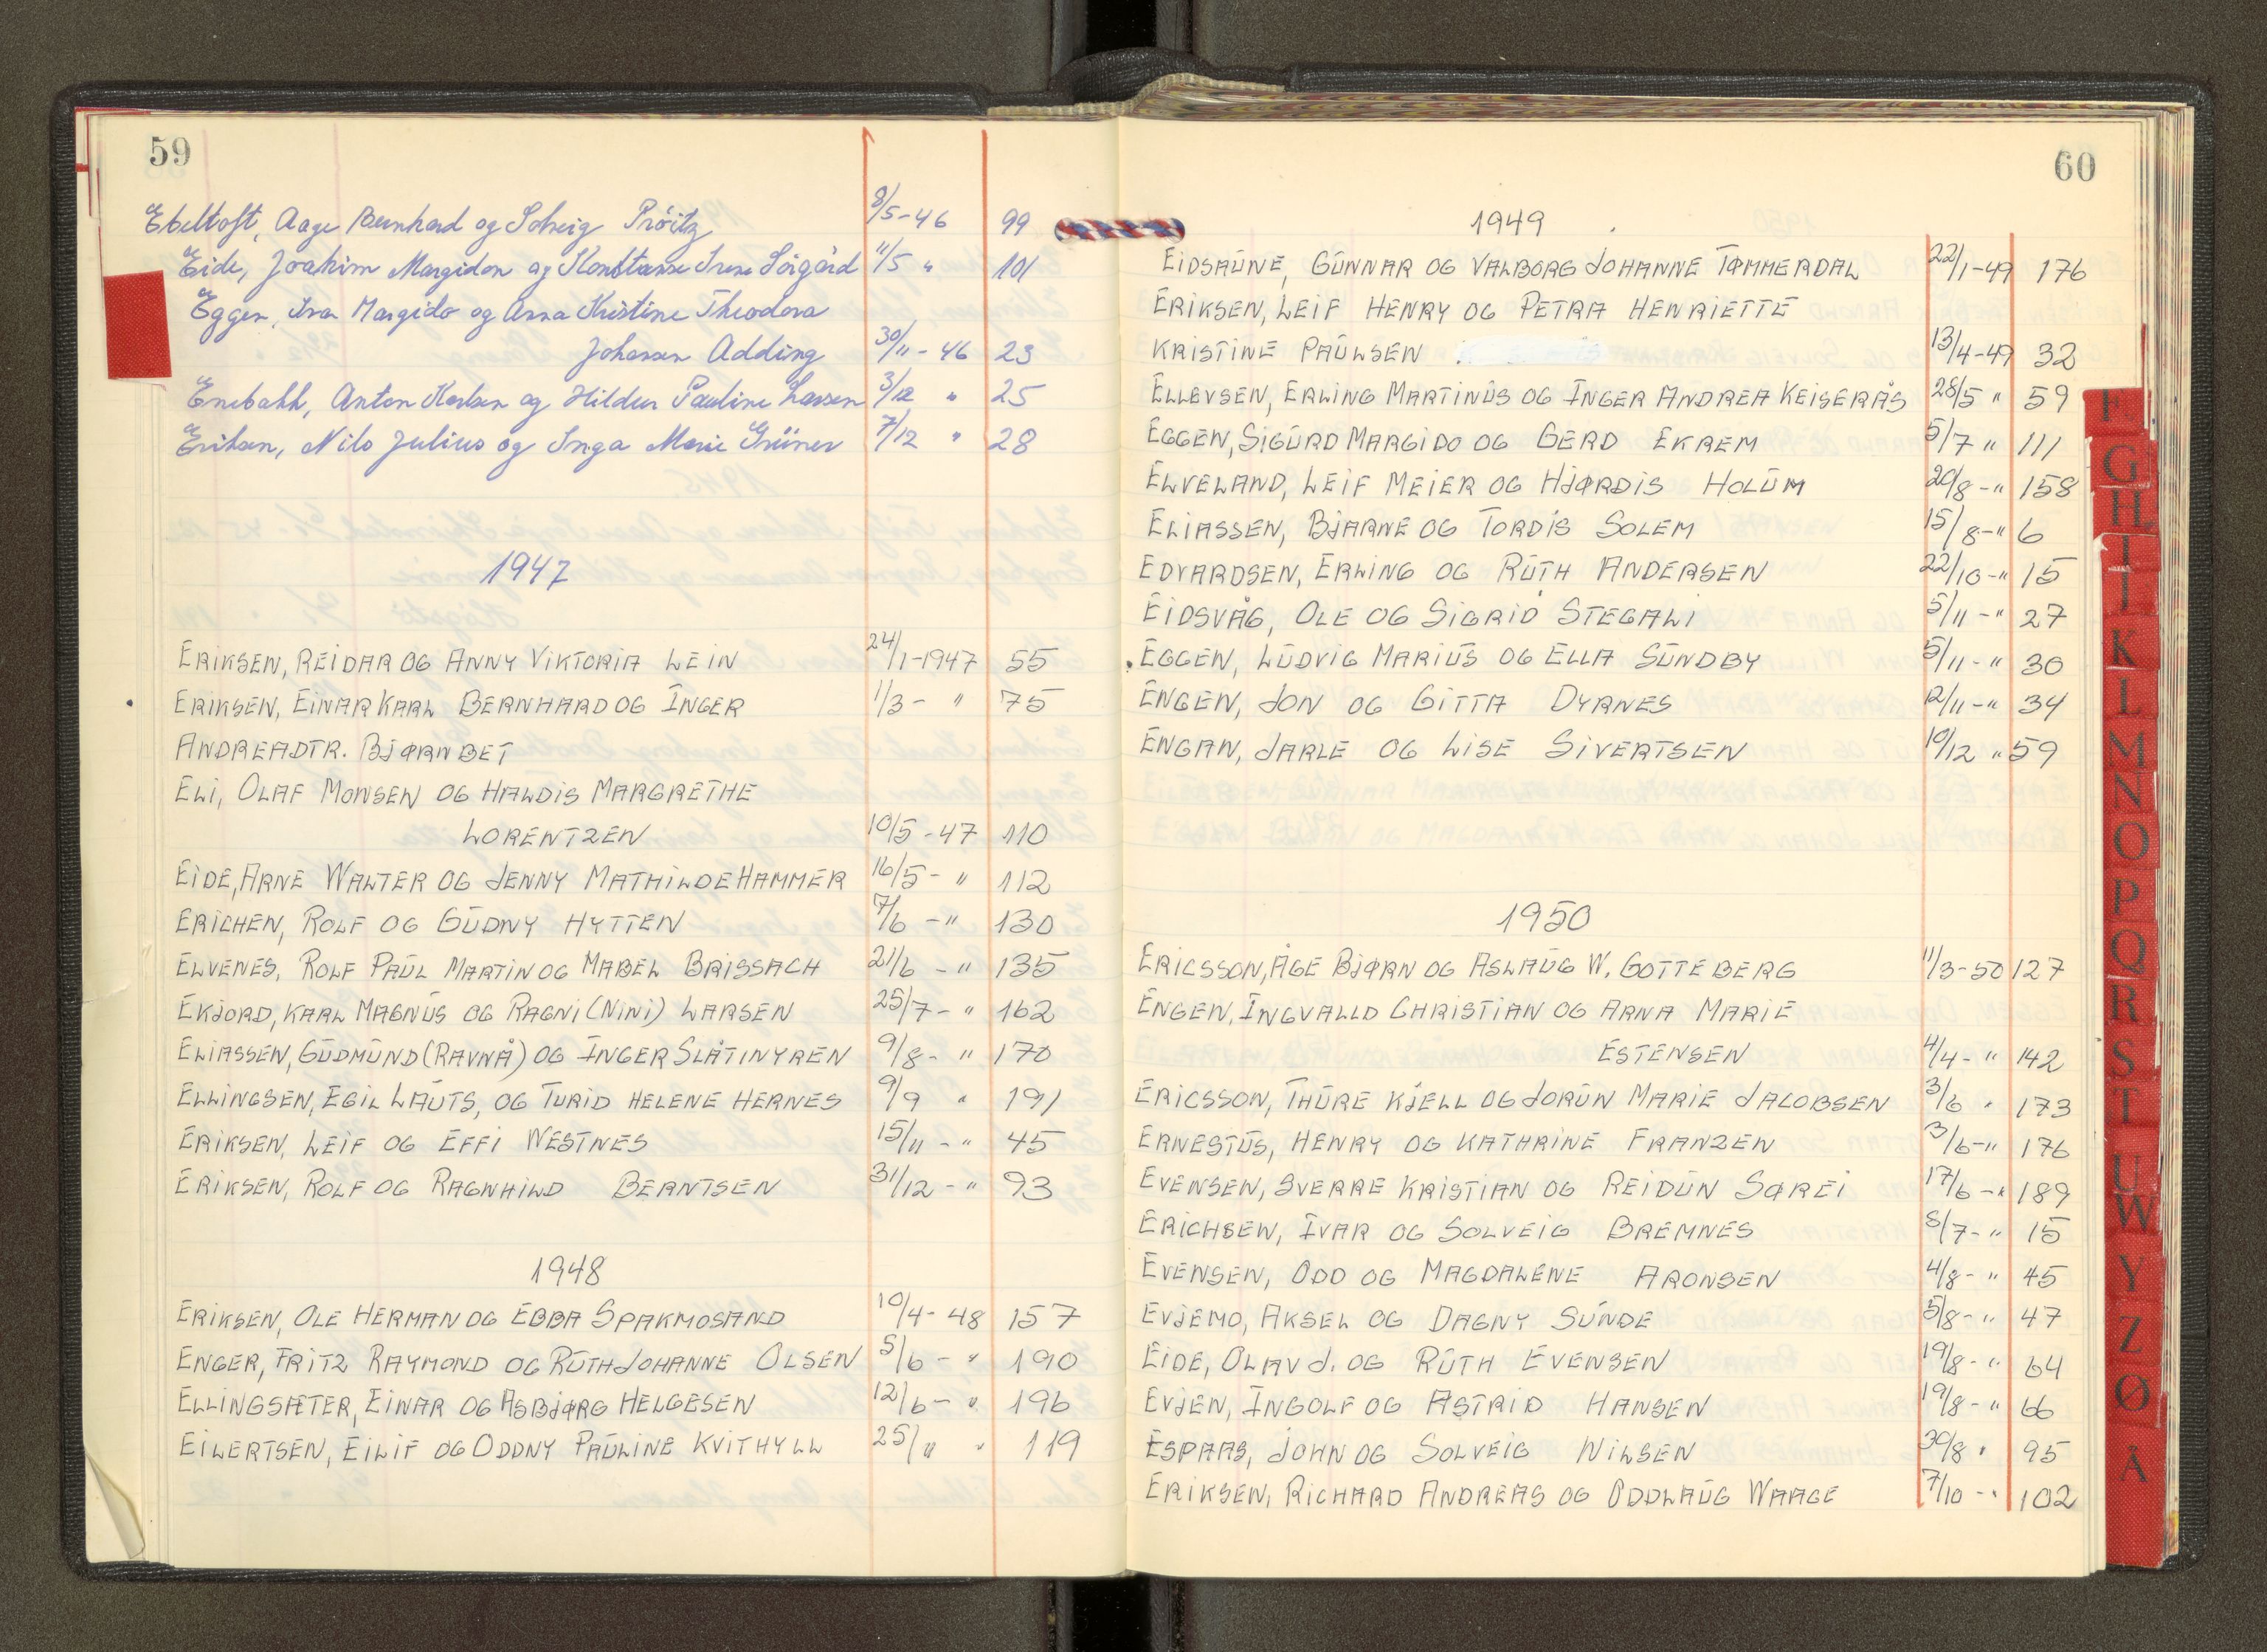 59
Ebeltoft, Aage Bernhard og Solveig Pröitz 8/5-46 99
Eide, Joakim Margidon og Konstanse Irene Sörgård 11/5 " 101
Eggen, Ivar Margido og Anna Kristine Theodora
Johansen Adding 30/11-46 23
Enebakk, Anton Karlsen og Hildur Pauline Larsen 3/12 " 25
Eriksen, Nils Julius og Inga Marie Grüner 7/12 " 28
1947
ERIKSEN, REIDAR OG ANNY VIKTORIA LEIN 24/1-1947 55
ERIKSEN, EINAR KARL BERNHARD OG INGER 1/3- " 75
ANDREADTR. BJØRNBET
ELI, OLAF MONSEN OG HALDIS MARGRETHE
LORENTZEN 10/5-47 110
EIDE, ARNE WALTER OG JENNY MATHILDE HAMMER 16/5- " 112
ERICHEN, ROLF OG GUDNY HYTTEN 7/6 -" 130
ELVENES, ROLF PAUL MARTIN OG MABEL BRISSACH 21/6 -" 135
EKJORD, KARL MAGNUS OG RAGNI (NINI) LARSEN 25/7- " 162
ELIASSEN, GUDMUND (RAVNÅ) OG INGER SLÅTINYREN 9/8- " 170
ELLINGSEN, EGIL LAUTS, OG TURID HELENE HERNES 9/9 " 191
ERIKSEN, LEIF OG EFFI WESTNES 15/11 -" 45
ERIKSEN, ROLF OG RAGNHILD BERNTSEN 31/12 -" 93
1948
ERIKSEN, OLE HERMAN OG EBBA SPAKMOSAND 10/4-48 157
ENGER, FRITZ RAYMOND OG RUTH JOHANNE OLSEN 5/6 - " 190
ELLINGSÆTER, EINAR OG ASBJØRG HELGESEN 12/6- " 196
EILERTSEN, EILIF OG ODDNY PAULINE KVITHYLL 25/" " 119
60
1949
EIDSAUNE, GUNNAR OG VALBORG JOHANNE TØMMERDAL 22/1-49 176
ERIKSEN, LEIF HENRY OG PETRA HENRIETTE
KRISTINE PAULSEN 13/4-49 32
ELLEVSEN, ERLING MARTINUS OG INGER ANDREA KEISERÅS 28/5 " 59
EGGEN, SIGURD MARGIDO OG GERD EKREM 5/7 " 111
ELVELAND, LEIF MEIER OG HJØRDIS HOLUM 20/8-" 158
ELIASSEN, BJARNE OG TORDIS SOLEM 15/8-" 6
EDVARDSEN, ERLING OG RUTH ANDERSEN 22/10-" 15
EIDSVÅG, OLE OG SIGRID STEGALI 5/11-" 27
EGGEN, LUDVIG MARIUS OG ELLA SUNDBY 5/11-" 30
ENGEN, JON OG GITTA DYRNES 12/11-" 34
ENGAN, JARLE OG LISE SIVERTSEN 10/12 " 59
1950
ERICSSON, ÅGE BJØRN OG ASLAUG W. GOTTEBERG 11/3-50 127
ENGEN, INGVALLD CHRISTIAN OG ARNA MARIE
ESTENSEN 4/4-" 142
ERICSSON, THURE KJELL OG JORUN MARIE JACOBSEN 3/6 " 173
ERNESTUS, HENRY OG KATHRINE FRANZEN 3/6-" 176
EVENSEN, SVERRE KRISTIAN OG REIDUN SØREI 17/6-" 189
ERICHSEN, IVAR OG SOLVEIG BREMNES 8/7-" 15
EVENSEN, ODD OG MAGDALENE ARONSEN 4/8-" 45
EVJEMO, AKSEL OG DAGNY SUNDE 5/8-" 47
EIDE, OLAV J. OG RUTH EVENSEN 19/8-" 64
EVJEN, INGOLF OG ASTRID HANSEN 19/8-" 66
ESPAAS, JOHN OG SOLVEIG NILSEN 30/8 " 95
ERIKSEN, RICHARD ANDREAS OG ODDLAUG WAAGE 7/10-" 102
F
G
H
I
J
K
L
M
N
O
P
Q
R
S
T
U
W
Y
Z
Ø
Å